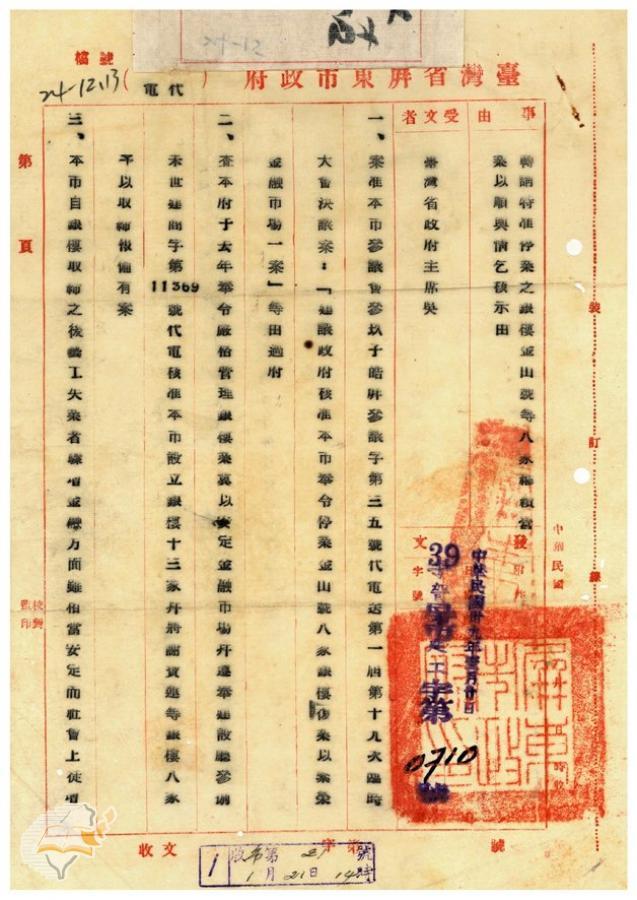 臺灣省屏東市政府(代電)
檔號
24-12.13
事由
受文者
轉請特准停業之銀樓金山號等八家繼續營業以順輿情乞核示由
臺灣省政府主席吳
中華民國卅九年壹月廿日
文字號
39
字第
0710
號
一、案准本市參議會參以子皓屏參議字第三五號代電送第一屆第十九次臨時
大會決議案:「建議政府核准本市奉令停業金山號八家銀樓復業以案榮
金融市場一案」等由過府
二、查本府于去年奉令嚴格管理銀樓業冀以安定金融市場并遵奉建設廳參捌
未世建商字第11369號代電核准本市設立銀樓十三家并將謝賀蓮等銀樓八家
予以取締報備有案
三、本市自銀樓取締之後職工失業者驟增金融方面雖相當安定而社會上徒增
第 頁
裝
訂
線
中華民國
校對
監印
收文
字第
號
1
收
府第
21
號
1月21日14時